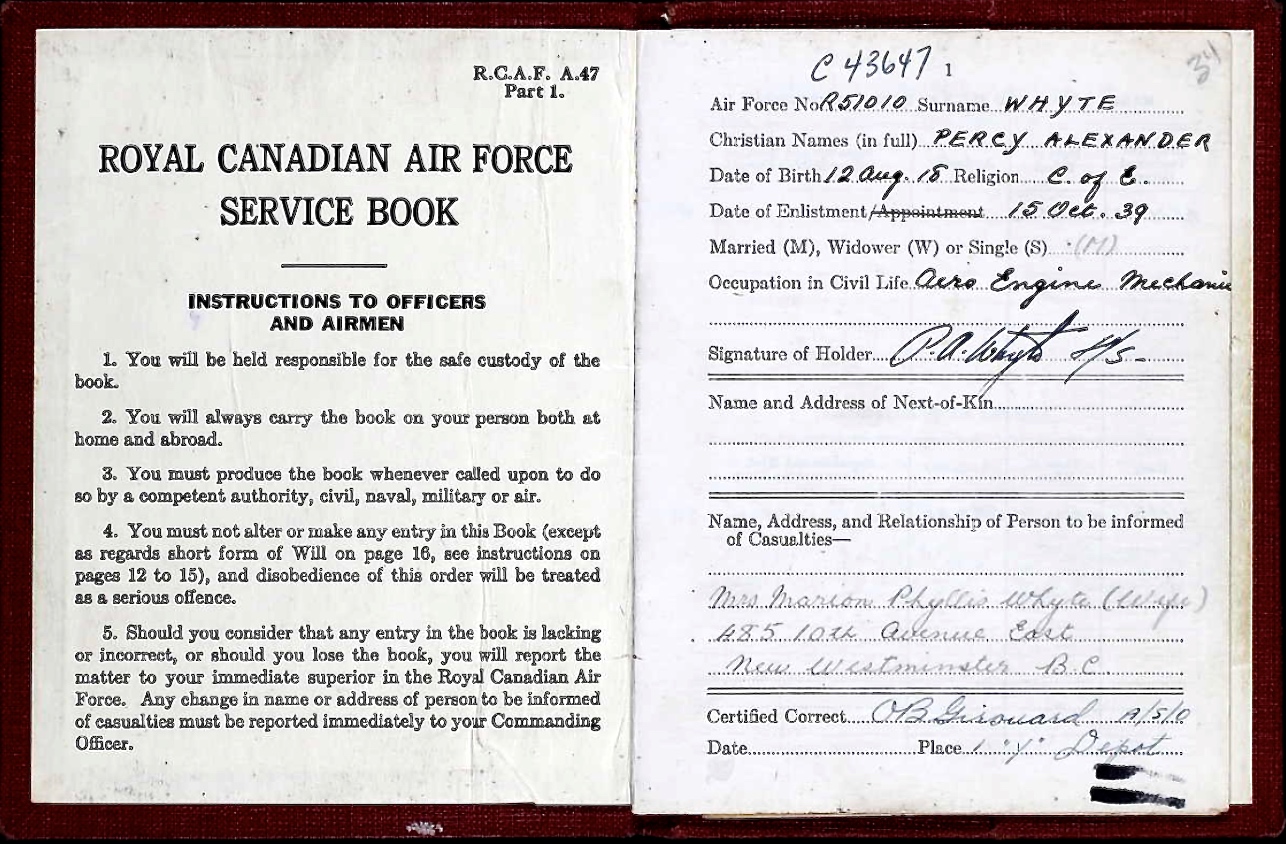 R.C.A.F. A.47
Part 1.
ROYAL CANADIAN AIR FORCE
SERVICE BOOK
INSTRUCTIONS TO OFFICERS
AND AIRMEN
1. You will be held responsible for the safe custody of the
book.
2. You will always carry the book on your person both at
home and abroad.
3. You must produce the book whenever called upon to do
so by a competent authority, civil, naval, military or air.
4. You must not alter or make any entry in this Book (except
as regards short form of Will on page 16, see instructions on
pages 12 to 15), and disobedience of this order will be treated
as a serious offence.
5. Should you consider that any entry in the book is lacking
or incorrect, or should you lose the book, you will report the
matter to your immediate superior in the Royal Canadian Air
Force. Any change in name or address of person to be informed
of casualties must be reported immediately to your Commanding
Officer.
C 43647 1
34
Air Force No R51010 Surname WHYTE
Christian Names (in full) PERCY ALEXANDER
Date of Birth 12 Aug. 18 Religion C. of E.
Date of Enlistment/Appointment 15 Oct. 39
Married (M), Widower (W) or Single (S) (M)
Occupation in Civil Life Aero Engine Mechanic
Signature of Holder P.A. Whyte F/S
Name and Address of Next-of-Kin
Name, Address, and Relationship of Person to be informed
of Casualties—
Mrs Marion Phyllis Whyte (Wife)
485 10th Avenue East
New Westminster B.C.
Certified Correct OB Girouard A/S/O
Date Place 1 "Y" Depot